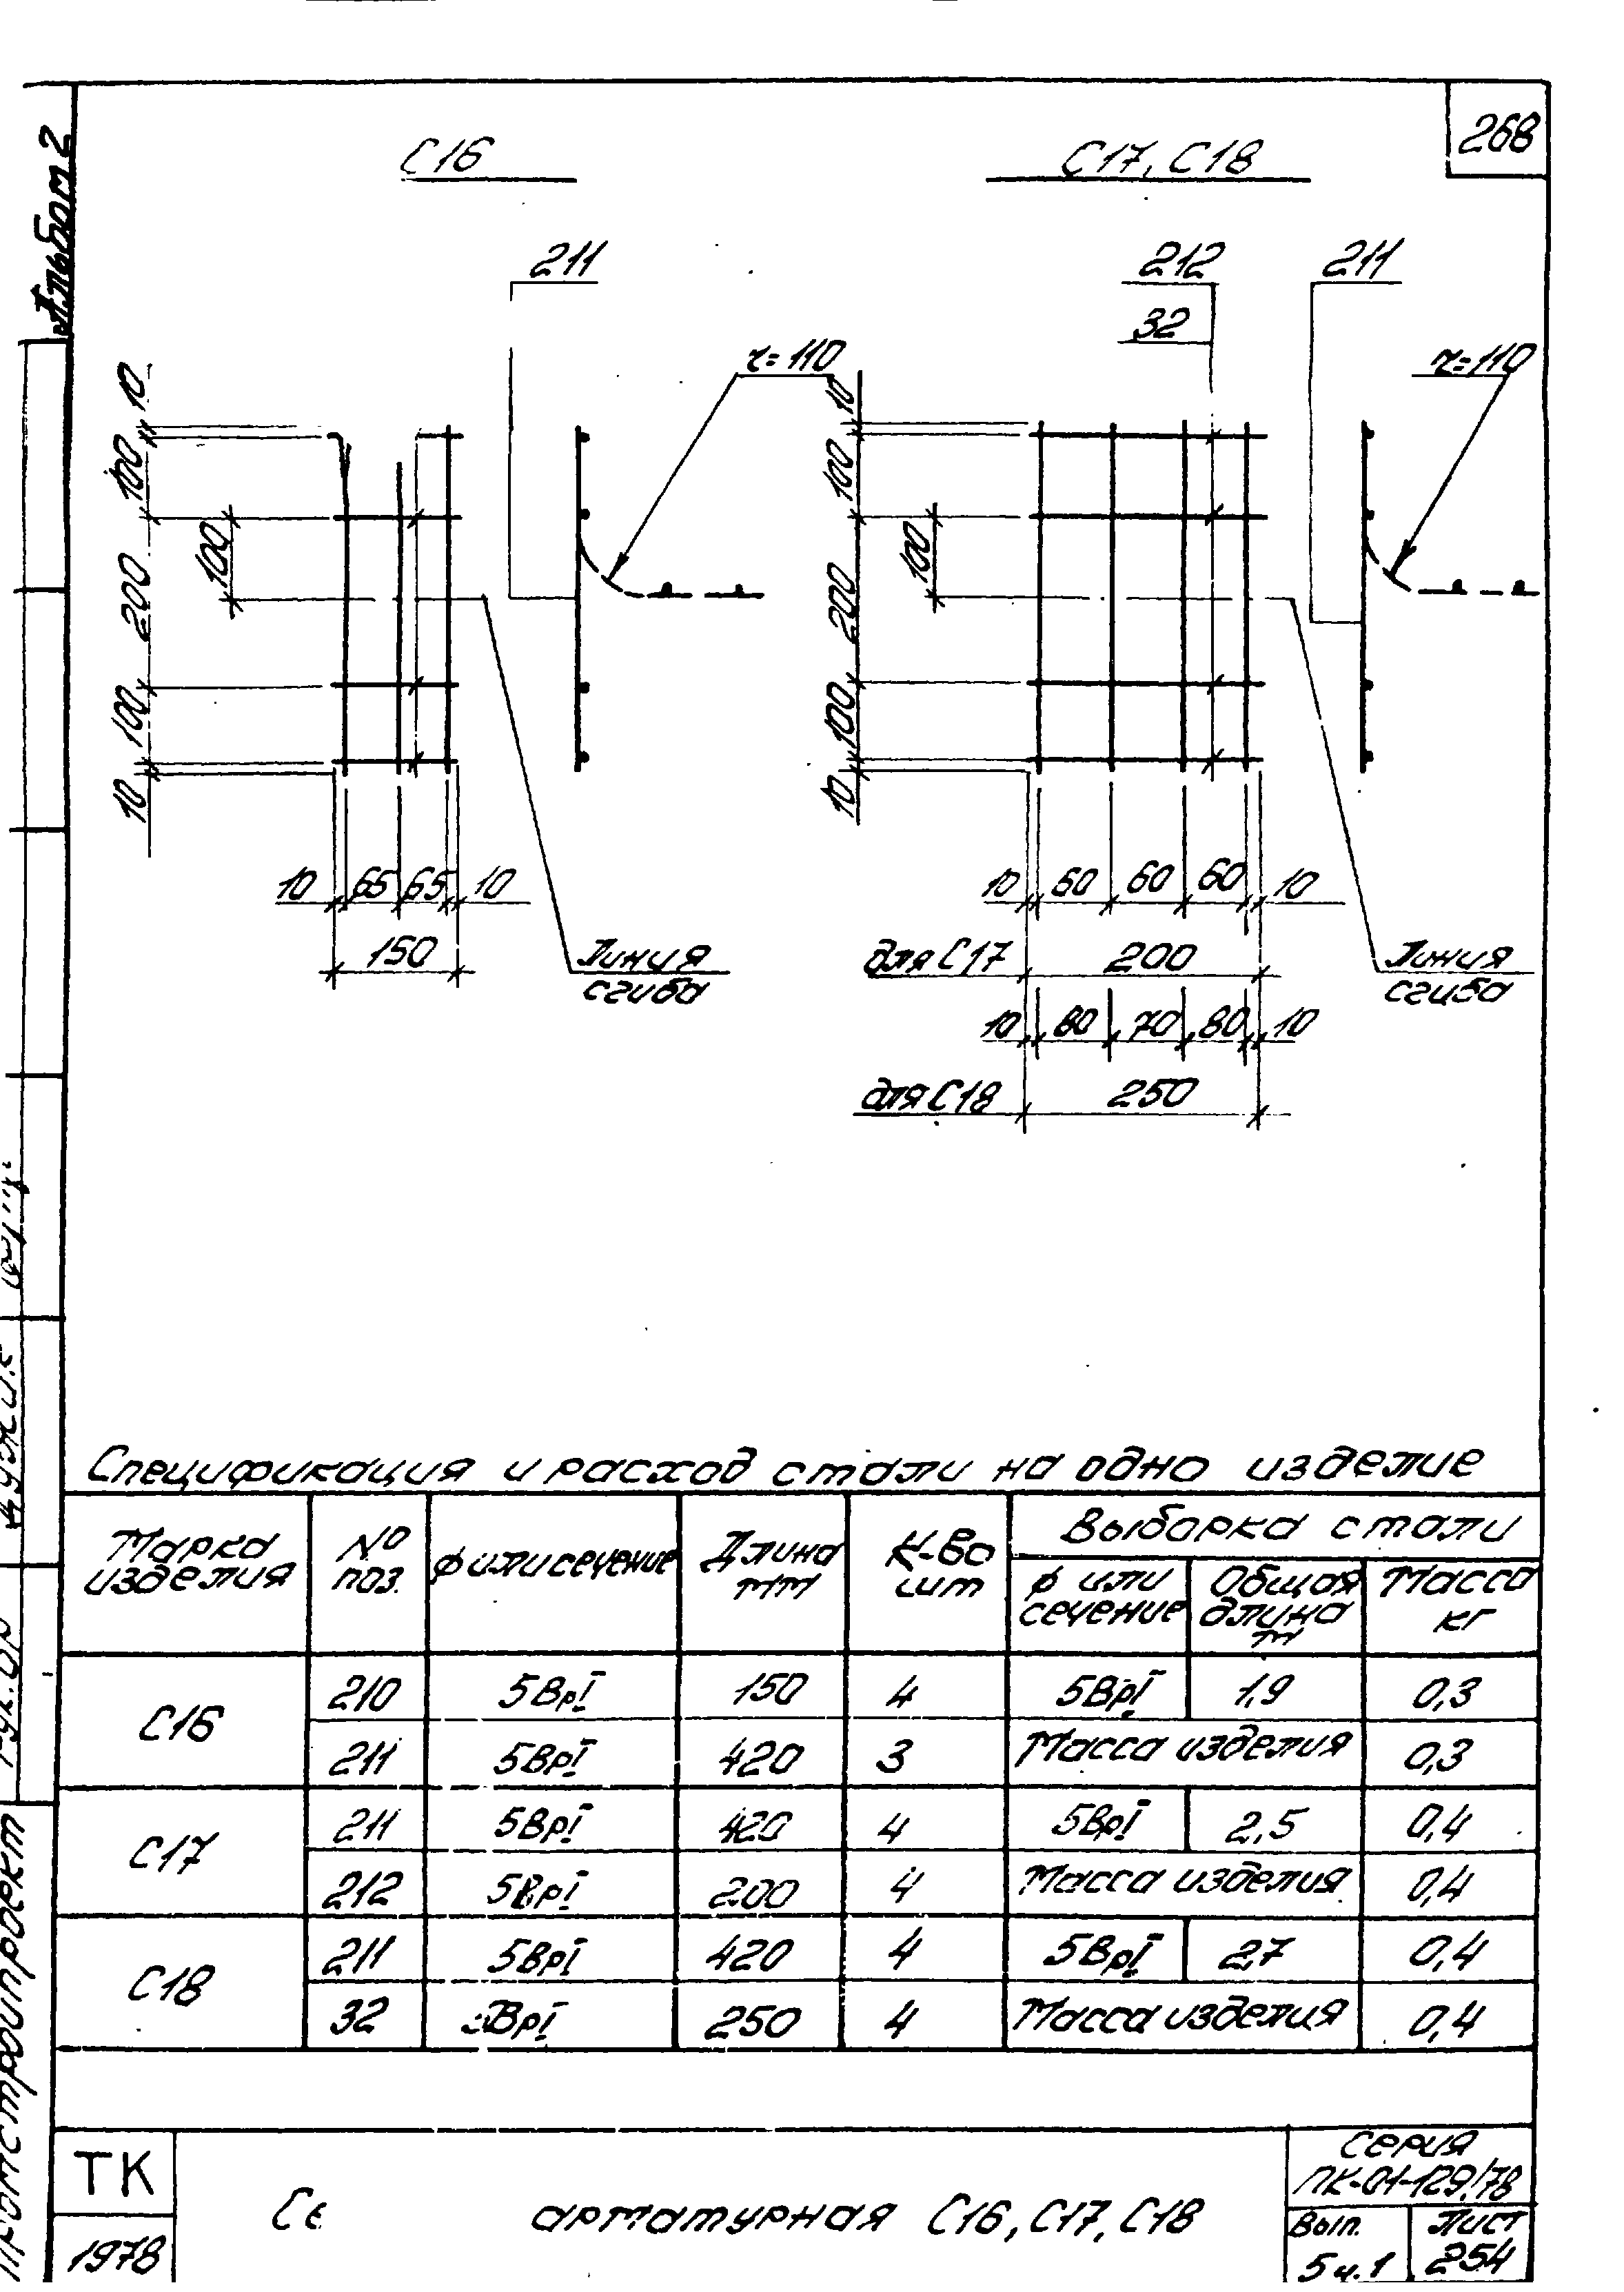 Альбом 2
268
С16
С17, С18
211
212
32
211
r=110
r=110
10
100
200
100
10
100
10
100
200
100
10
100
10 65 65 10
150
Линия
сгиба
10 60 60 60 10
для С17 200
10 80 70 80 10
для С18 250
Линия
сгиба
Спецификация и расход стали на одно изделие
Марка изделия
№ поз.
ф или сечение
Длина мм
К-во шт
Выборка стали
ф или сечение
Общая длина м
Масса кг
С16
210 5ВрI 150 4 5ВрI 1,9 0,3
211 5ВрI 420 3 Масса изделия 0,3
С17
211 5ВрI 420 4 5ВрI 2,5 0,4
212 5ВрI 200 4 Масса изделия 0,4
С18
211 5ВрI 420 4 5ВрI 2,7 0,4
32 ВрI 250 4 Масса изделия 0,4
ТК
1978
арматурная С16, С17, С18
Серия
ПК-01-129/78
Вып.
5 ч.1
Лист
254